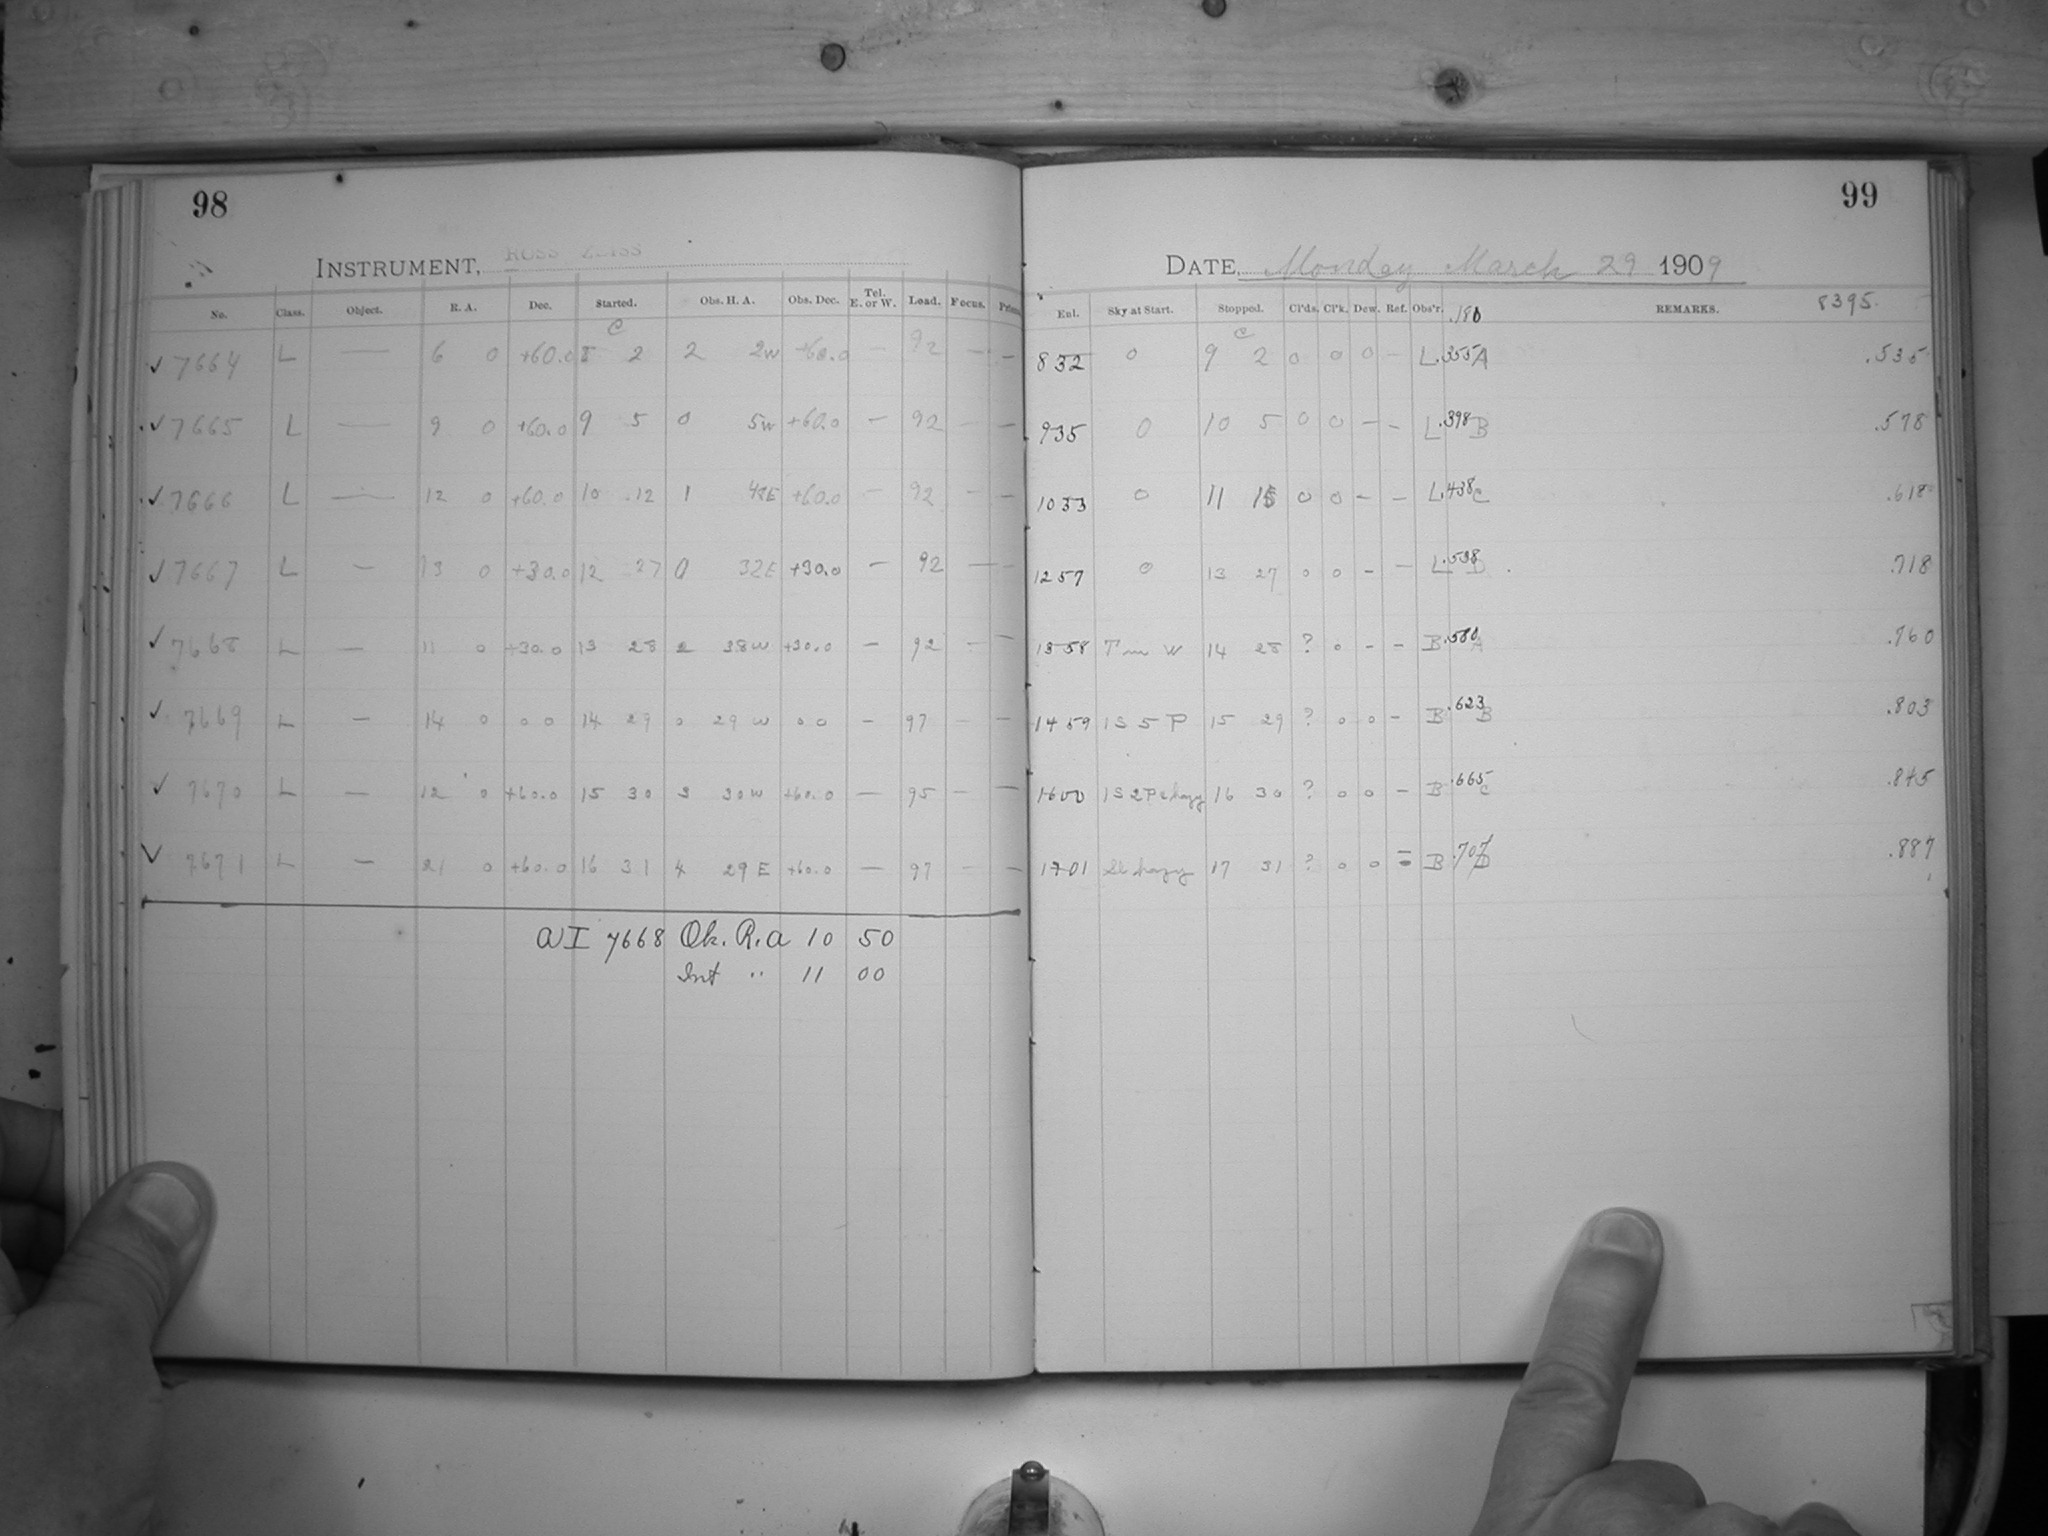 98
INSTRUMENT, ROSS ZEISS
No. Class. Object. R. A. Dec. Started. Obs. H. A. Obs. Dec. Tel. E. or W. Lead. Focus.
C
✓ 7664 L — 6 0 +60.0 8 2 2 2W +60.0 — 92 — —
✓ 7665 L — 9 0 +60.0 9 5 0 5W +60.0 — 92 — —
✓ 7666 L — 12 0 +60.0 10 12 1 48E +60.0 — 92 — —
✓ 7667 L — 13 0 +30.0 12 27 0 32E +30.0 — 92 — —
✓ 7668 L — 11 0 +30.0 13 28 2 38W +30.0 — 92 — —
✓ 7669 L — 14 0 0 0 14 29 0 29 W 0 0 — 97 — —
✓ 7670 L — 12 0 +60.0 15 30 3 30W +60.0 — 95 — —
✓ 7671 L — 21 0 +60.0 16 31 4 29 E +60.0 — 97 — —
7668 Ob. R.a 10 50
Int " 11 00
99
DATE, Monday March 29 1909
Exl. Sky at Start. Stopped. Cl'ds. Cl'k. Dew. Ref. Obs'r. .180 REMARKS. 8395.
C
832 0 9 2 0 0 0 — L .355 A .535
935 0 10 5 0 0 — — L .398 B .578
1033 0 11 15 0 0 — — L .438 C .618
1257 0 13 27 0 0 — — L .538 D .718
1358 14 28 ? 0 — — B .580 A .760
1459 1S 5 P 15 29 ? 0 0 — B .623 B .803
1600 1S 2P 16 30 ? 0 0 — B .665 C .845
1701 hazy 17 31 ? 0 0 B .707 D .887